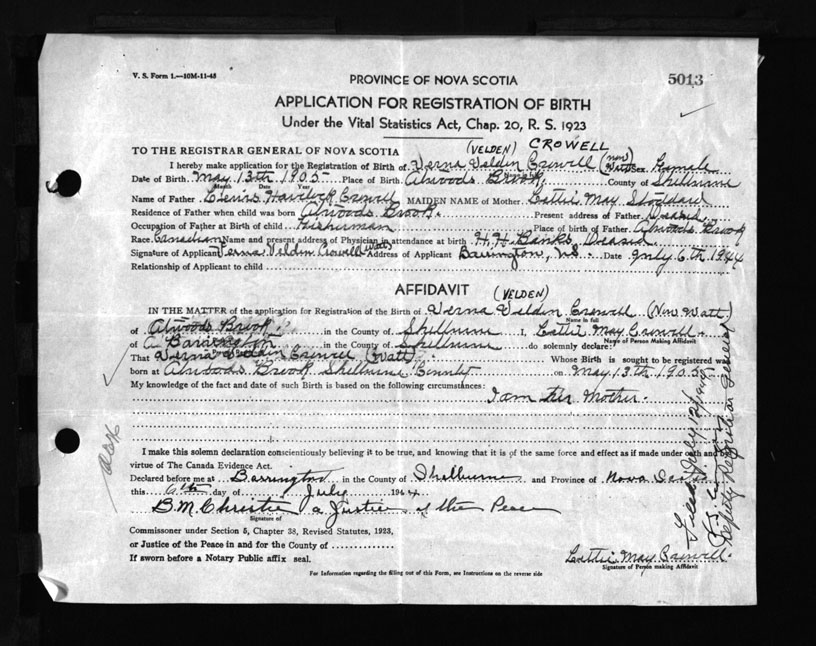 V. S. Form 1.—10M-11-43
PROVINCE OF NOVA SCOTIA
5013
APPLICATION FOR REGISTRATION OF BIRTH
Under the Vital Statistics Act, Chap. 20, R. S. 1923
(VELDEN) CROWELL
TO THE REGISTRAR GENERAL OF NOVA SCOTIA
I hereby make application for the Registration of Birth of Verna Veldin Crowell (now Watt) Sex Female
Date of Birth May 13th 1905 Place of Birth Atwoods Brook County of Shelburne
Month Date Year
Name of Father Havelock Crowell MAIDEN NAME of Mother Lettie May Stoddard
Residence of Father when child was born Atwoods Brook. Present address of Father Deased.
Occupation of Father at Birth of child Fisherman Place of birth of Father Atwoods Brook
Race Canadian Name and present address of Physician in attendance at birth H. H. Banks Deased
Signature of Applicant Verna Veldin Crowell Watt Address of Applicant Barrington, N.S. Date July 6th 1944
Relationship of Applicant to child
AFFIDAVIT
(VELDEN)
IN THE MATTER of the application for Registration of the Birth of Verna Veldin Crowell (Now Watt)
Name in full
of Atwoods Brook in the County of Shelburne I, Lettie May Crowell
Name of Person Making Affidavit
of Barrington in the County of Shelburne do solemnly declare:
That Verna Veldin Crowell (Watt) Whose Birth is sought to be registered was
born at Atwoods Brook Shelburne County on May 13th 1905
My knowledge of the fact and date of such Birth is based on the following circumstances:
I am her Mother.
I make this solemn declaration conscientiously believing it to be true, and knowing that it is of the same force and effect as if made under oath and by
virtue of The Canada Evidence Act.
Declared before me at Barrington in the County of Shelburne and Province of Nova Scotia
this 6th day of July 1944
B. M. Christie a Justice of the Peace
Signature of
Commissioner under Section 5, Chapter 38, Revised Statutes, 1923,
or Justice of the Peace in and for the County of
If sworn before a Notary Public affix seal.
Lettie May Crowell
Signature of Person making Affidavit
For Information regarding the filling out of this Form, see Instructions on the reverse side
Filed July 12/44
Deputy Registrar General